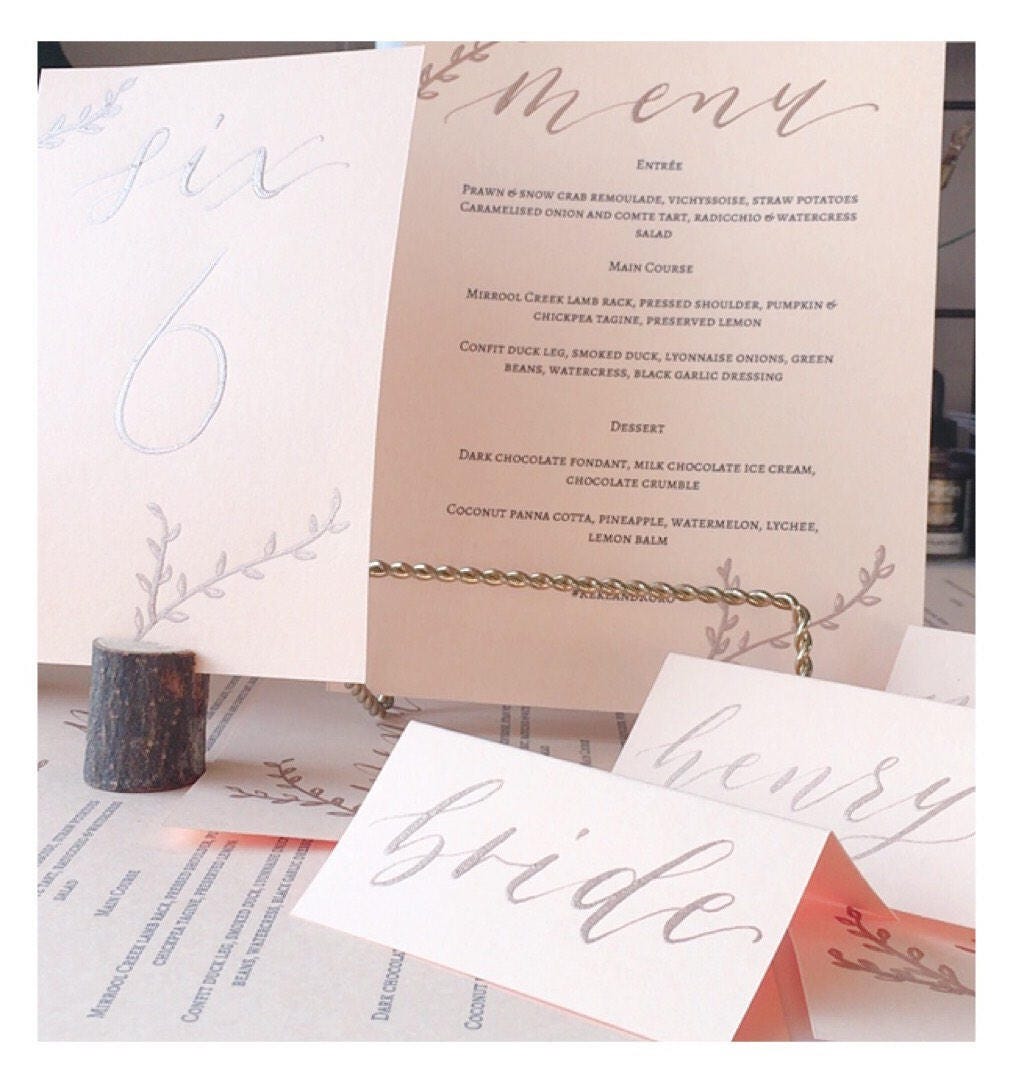 six
6
menu
Entrée
Prawn & snow crab remoulade, vichyssoise, straw potatoes
Caramelised onion and comte tart, radicchio & watercress
salad
Main Course
Mirrool Creek lamb rack, pressed shoulder, pumpkin &
chickpea tagine, preserved lemon
Confit duck leg, smoked duck, lyonnaise onions, green
beans, watercress, black garlic dressing
Dessert
Dark chocolate fondant, milk chocolate ice cream,
chocolate crumble
Coconut panna cotta, pineapple, watermelon, lychee,
lemon balm
henry
bride
straw potatoes
radicchio & watercress
salad
Main Course
Mirrool Creek lamb rack, pressed shoulder,
chickpea tagine, preserved lemon
Confit duck leg, smoked duck, lyonnaise
beans, watercress, black garlic dressing
Dark chocola
Coconut